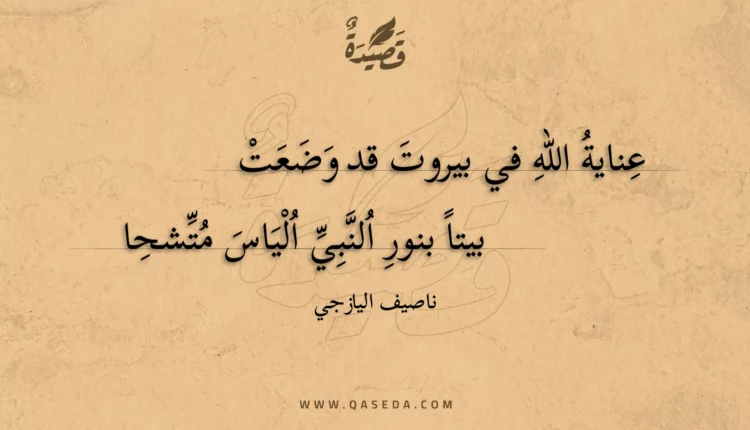 قَصِيْدَةٌ
عِنايةُ اللهِ في بيروتَ قد وَضَعَتْ
بيتاً بنورِ اُلنَّبِيِّ اُلْيَاسَ مُتِّشحِا
ناصيف اليازجي
WWW.QASEDA.COM